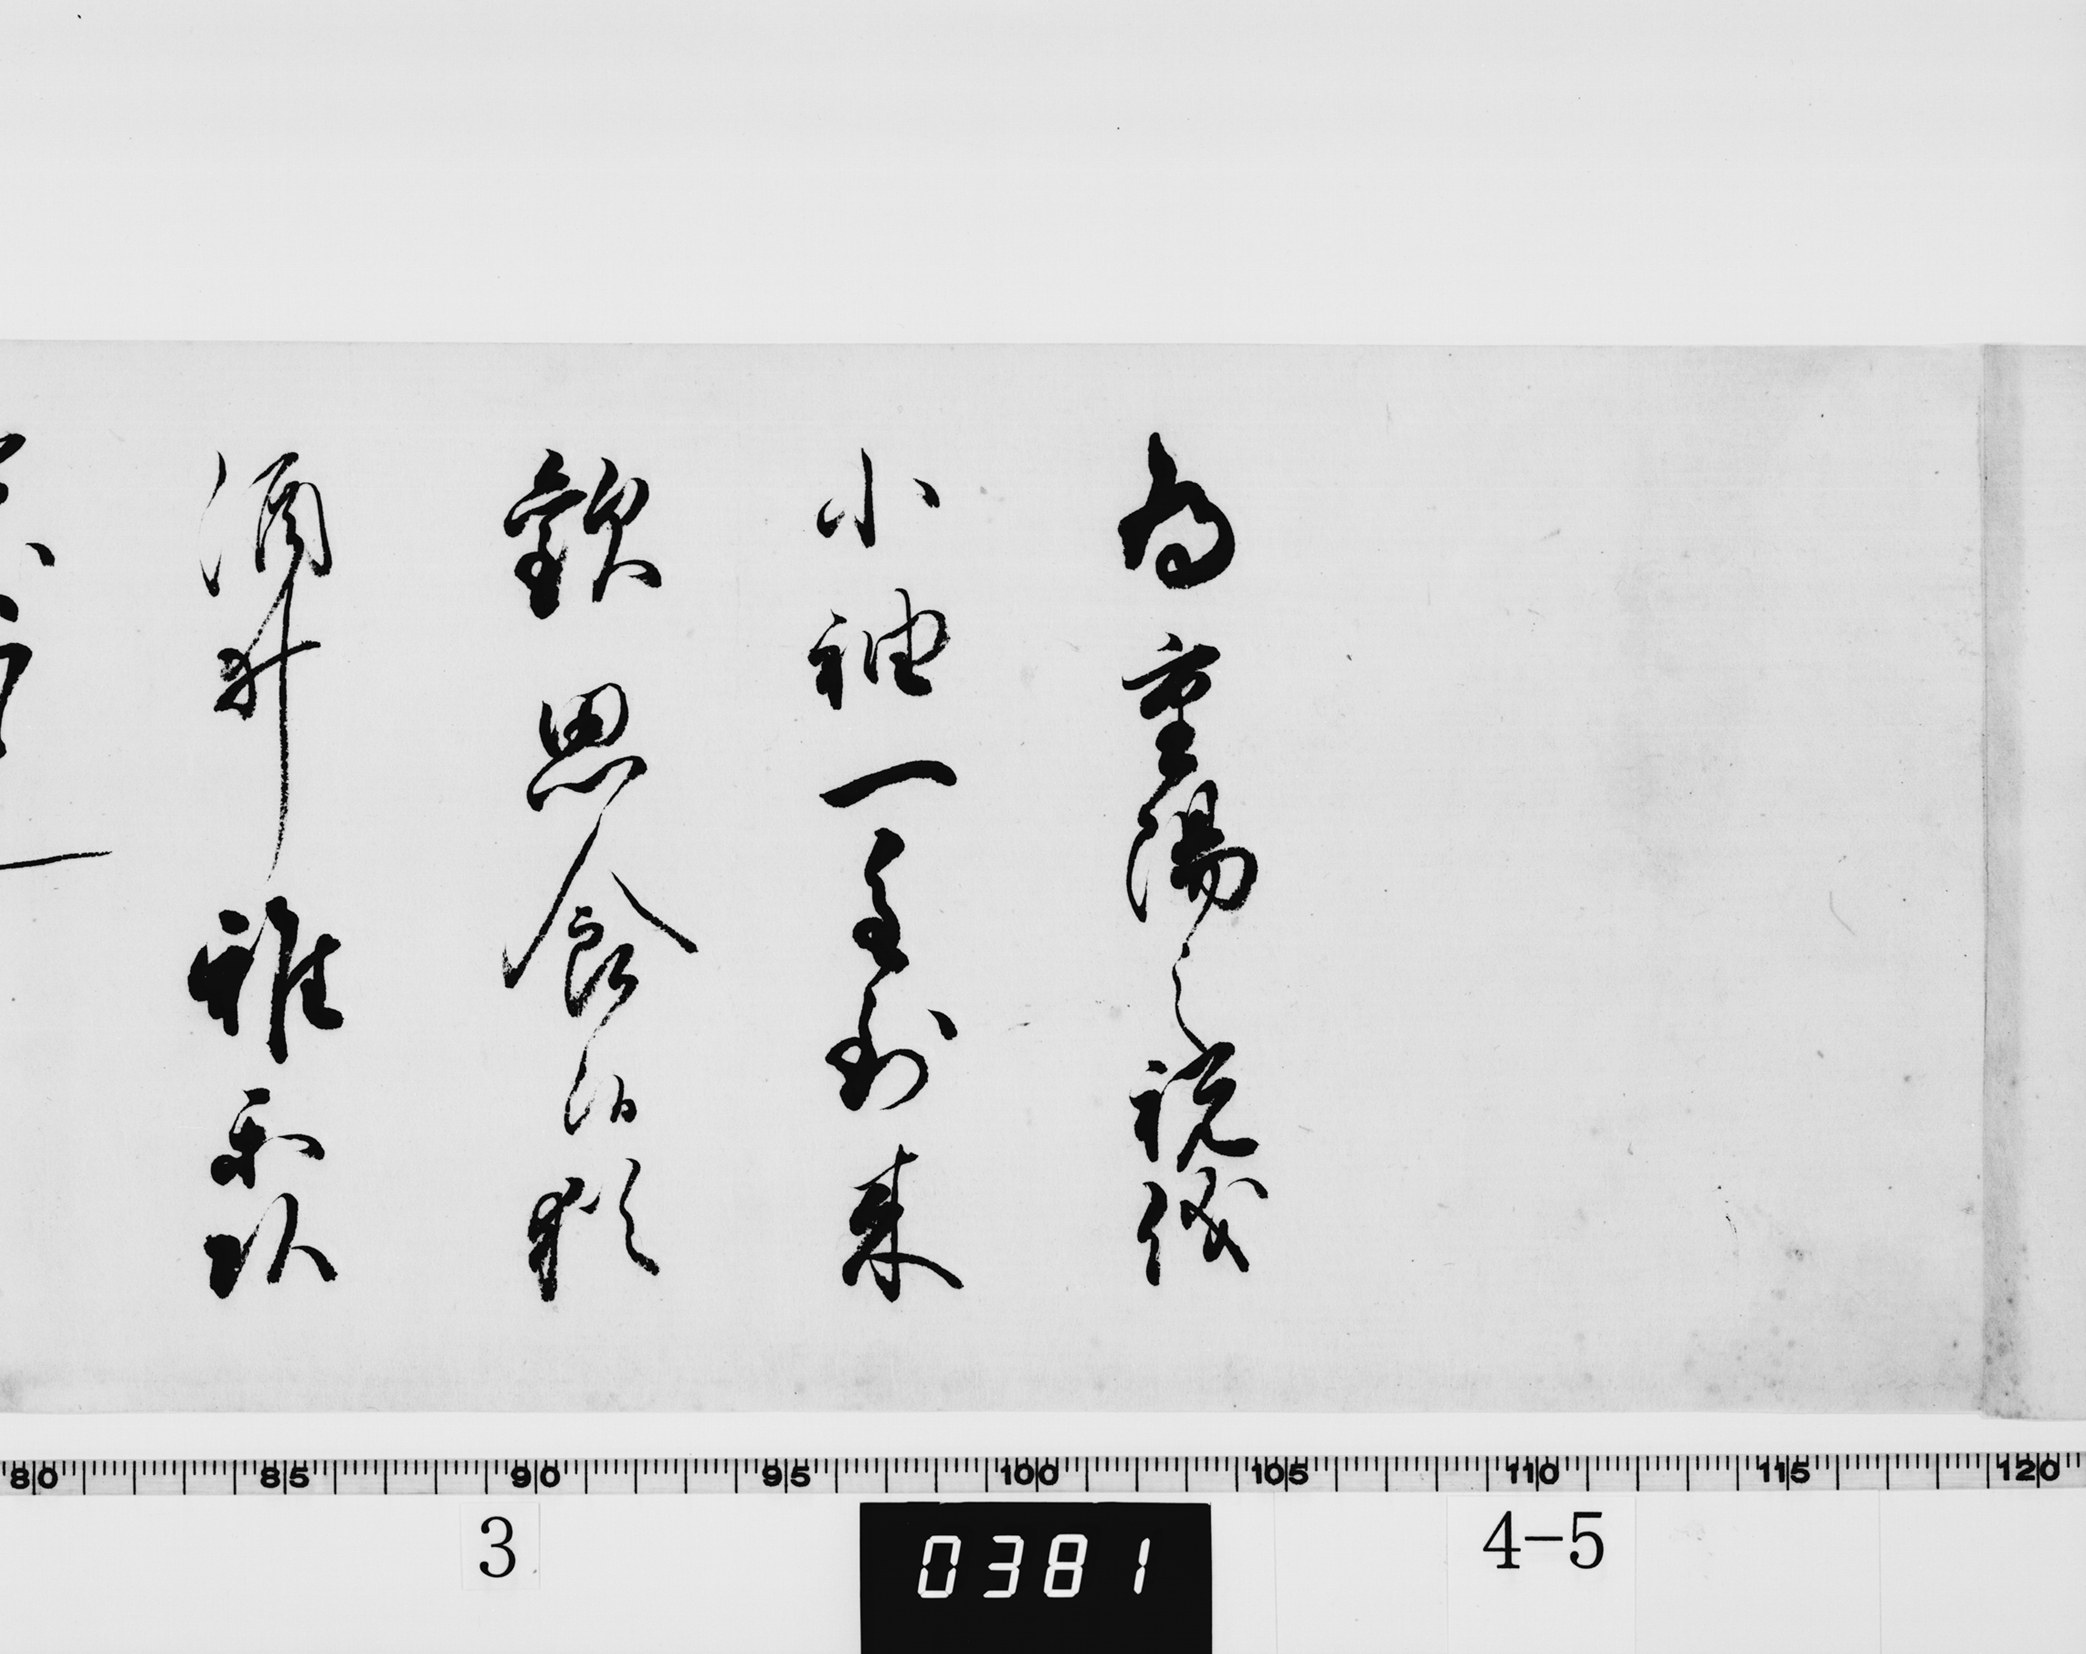 為重陽之祝儀
小袖一重到来
歓思食候猶
酒井雅楽頭
80 85 90 95 100 105 110 115 120
3
0381
4-5